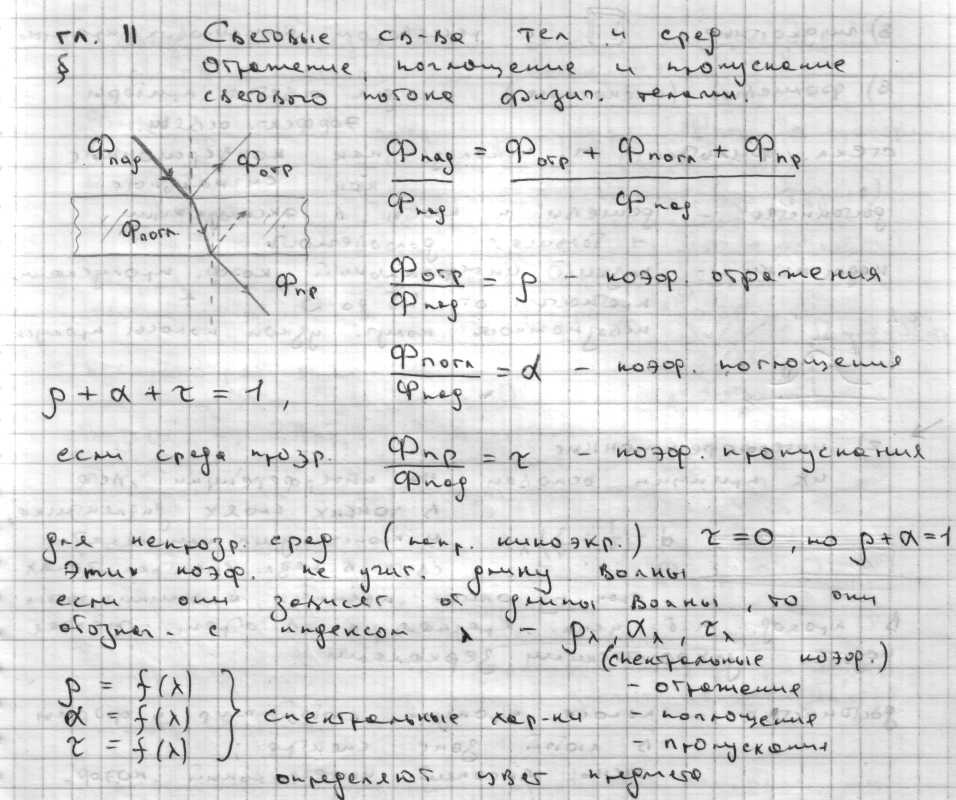 гл. II Световые св-ва тел и сред
§ Отражение, поглощение и пропускание
светового потока физич. телами.
Φпад Φотр Φпогл Φпр
Φпад / Φпад = (Φотр + Φпогл + Φпр) / Φпад
Φотр / Φпад = ρ – коэф. отражения
Φпогл / Φпад = α – коэф. поглощения
ρ + α + τ = 1,
если среда прозр. Φпр / Φпад = τ – коэф. пропускания
для непрозр. сред (напр. киноэкр.) τ = 0, но ρ + α = 1
Этих коэф. не учит. длину волны
если они зависят от длины волны, то они
обознач. с индексом λ – ρλ, αλ, τλ
(спектральные коэф.)
ρ = f(λ) – отражение
α = f(λ) } спектральные хар-ки – поглощения
τ = f(λ) – пропускания
определяют цвет предмета